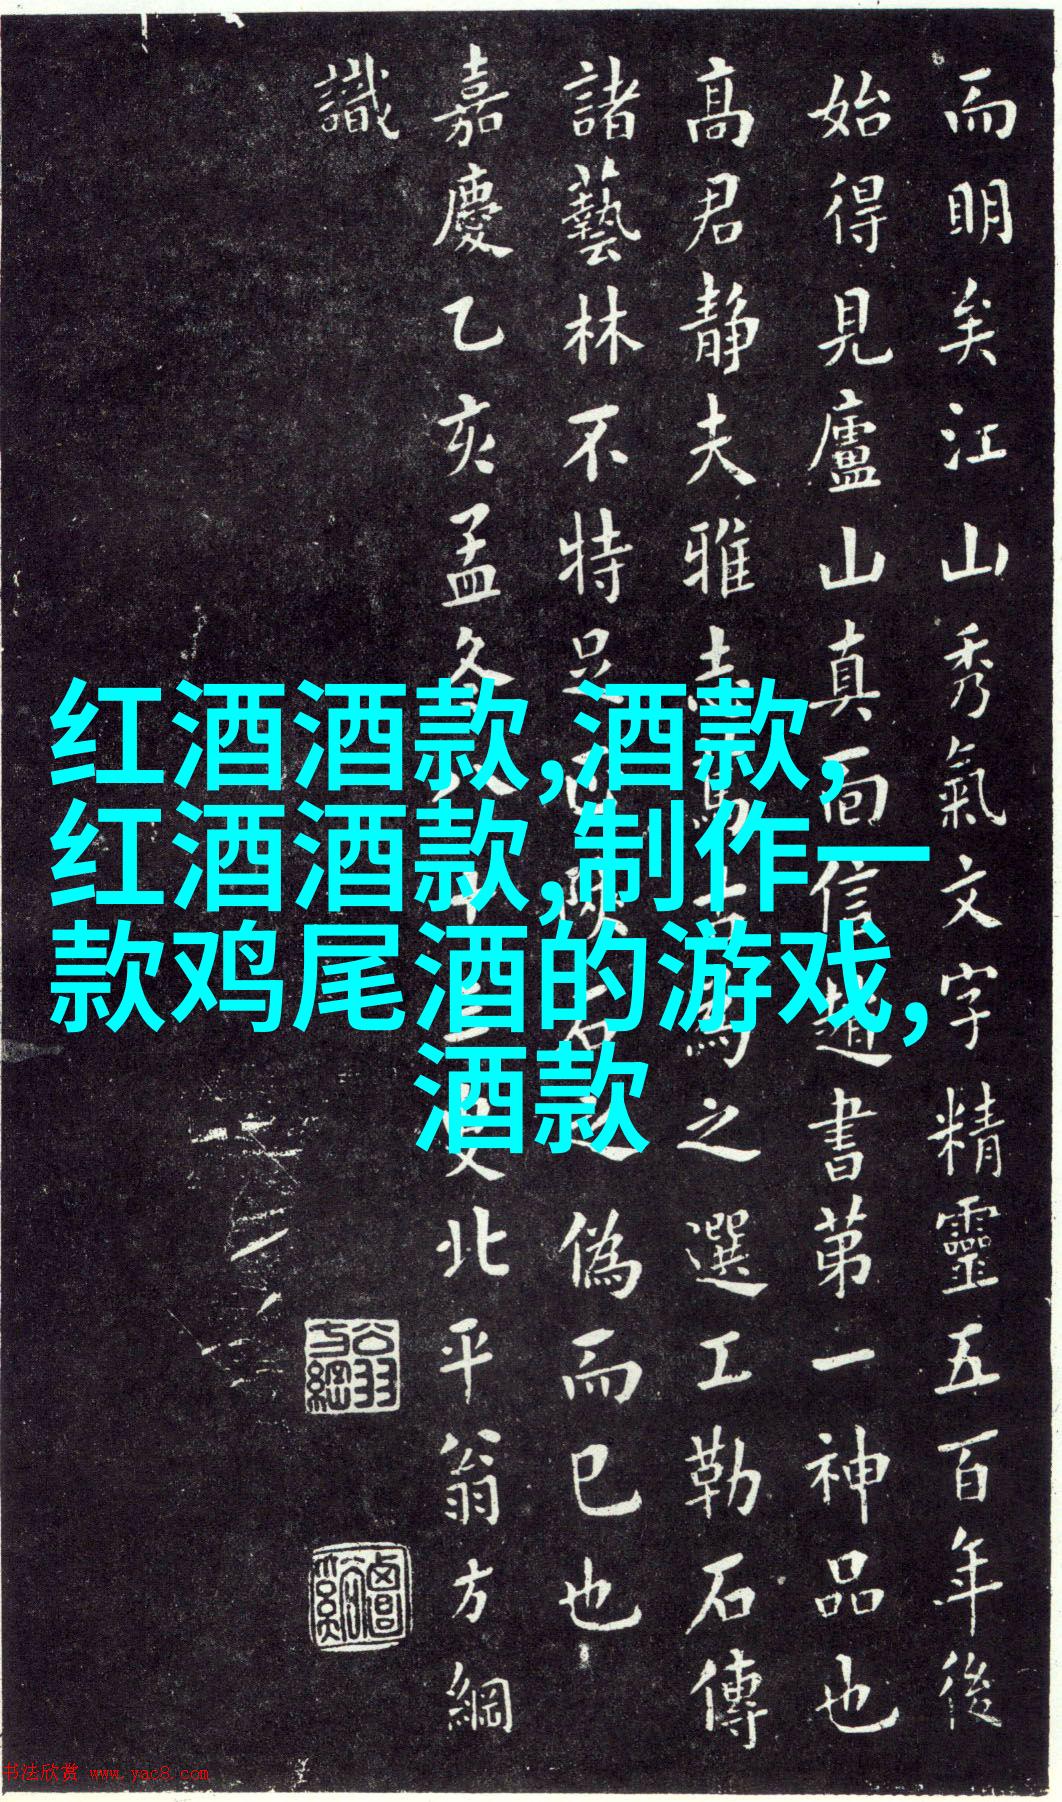 而明矣江山秀氣文字精靈五百年後
始得見廬山真面信趙書第一神品也
高君静夫雅之選工勒石傳
諸藝林不特足偽而已也
嘉慶乙亥孟冬八十三叟北平翁方綱
識
红酒酒款,酒款,
红酒酒款,制作一
款鸡尾酒的游戏,
酒款
翁方綱
书法欣赏 www.yac8.com